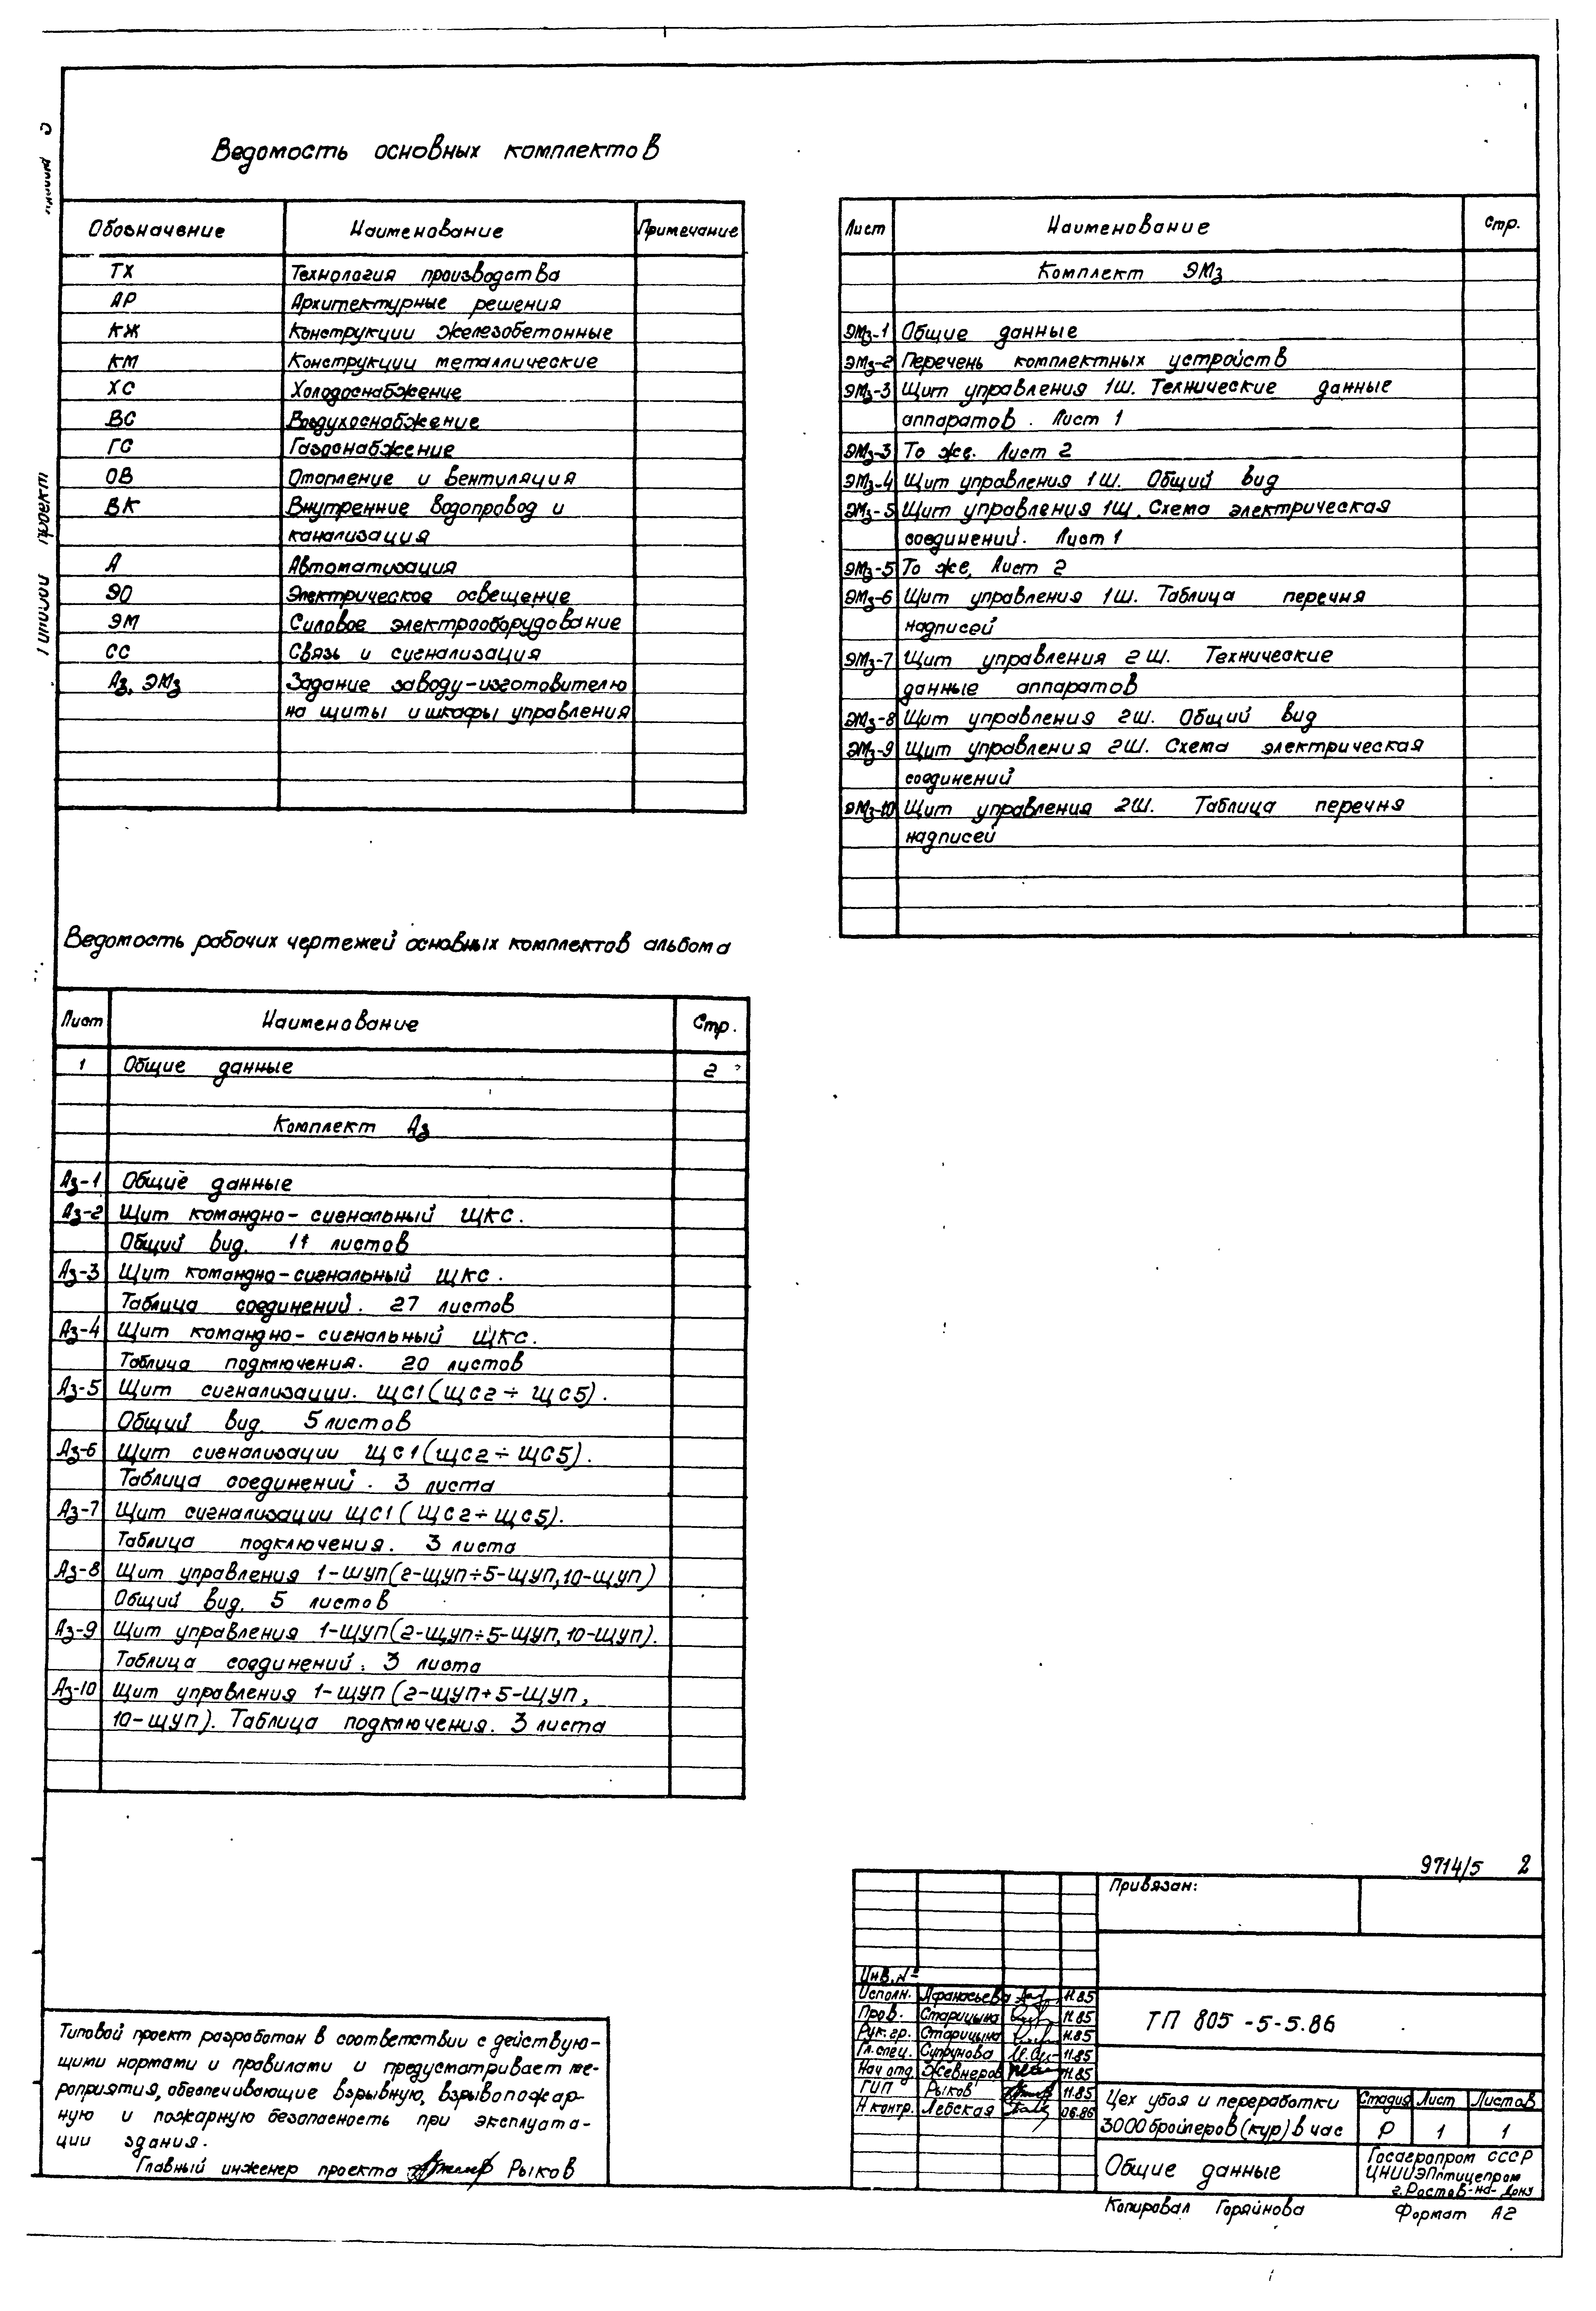 Ведомость основных комплектов
Обозначение Наименование Примечание
ТХ Технология производства
АР Архитектурные решения
КЖ Конструкции железобетонные
КМ Конструкции металлические
ХС Холодоснабжение
ВС Воздухоснабжение
ГС Газоснабжение
ОВ Отопление и вентиляция
ВК Внутренние водопровод и
канализация
А Автоматизация
ЭО Электрическое освещение
ЭМ Силовое электрооборудование
СС Связь и сигнализация
Аз, ЭМз Задание заводу-изготовителю
на щиты и шкафы управления
Ведомость рабочих чертежей основных комплектов альбома
Лист Наименование Стр.
1 Общие данные 2
Комплект Аз
Аз-1 Общие данные
Аз-2 Щит командно-сигнальный ЩКС.
Общий вид. 11 листов
Аз-3 Щит командно-сигнальный ЩКС.
Таблица соединений. 27 листов
Аз-4 Щит командно-сигнальный ЩКС.
Таблица подключения. 20 листов
Аз-5 Щит сигнализации. ЩС1 (ЩС2÷ЩС5).
Общий вид. 5 листов
Аз-6 Щит сигнализации ЩС1 (ЩС2÷ЩС5).
Таблица соединений. 3 листа
Аз-7 Щит сигнализации ЩС1 (ЩС2÷ЩС5).
Таблица подключения. 3 листа
Аз-8 Щит управления 1-ЩУП (2-ЩУП÷5-ЩУП, 10-ЩУП)
Общий вид. 5 листов
Аз-9 Щит управления 1-ЩУП (2-ЩУП÷5-ЩУП, 10-ЩУП).
Таблица соединений. 3 листа
Аз-10 Щит управления 1-ЩУП (2-ЩУП÷5-ЩУП,
10-ЩУП). Таблица подключения. 3 листа
Лист Наименование Стр.
Комплект ЭМз
ЭМз-1 Общие данные
ЭМз-2 Перечень комплектных устройств
ЭМз-3 Щит управления 1Щ. Технические данные
аппаратов. Лист 1
ЭМз-3 То же. Лист 2
ЭМз-4 Щит управления 1Щ. Общий вид
ЭМз-5 Щит управления 1Щ. Схема электрическая
соединений. Лист 1
ЭМз-5 То же. Лист 2
ЭМз-6 Щит управления 1Щ. Таблица перечня
надписей
ЭМз-7 Щит управления 2Щ. Технические
данные аппаратов
ЭМз-8 Щит управления 2Щ. Общий вид
ЭМз-9 Щит управления 2Щ. Схема электрическая
соединений
ЭМз-10 Щит управления 2Щ. Таблица перечня
надписей
Типовой проект разработан в соответствии с действую-
щими нормами и правилами и предусматривает ме-
роприятия, обеспечивающие взрывную, взрывопожар-
ную и пожарную безопасность при эксплуата-
ции здания.
Главный инженер проекта Рыков
9714/5 2
Привязан:
Инв. №
Исполн. Афанасьева 11.85
Пров. Старицына 11.85
Рук. гр. Старицына 11.85
Гл. спец. Супрунова 11.85
Нач отд. Жевнеров 11.85
ГИП Рыков 11.85
Н контр. Лебская 06.86
ТП 805-5-5.86
Цех убоя и переработки
3000 бройлеров (кур) в час
Стадия Лист Листов
Р 1 1
Общие данные
Госагропром СССР
ЦНИИЭПптицепром
г. Ростов-на-Дону
Копировал Горяйнова Формат А2
Типовой проект